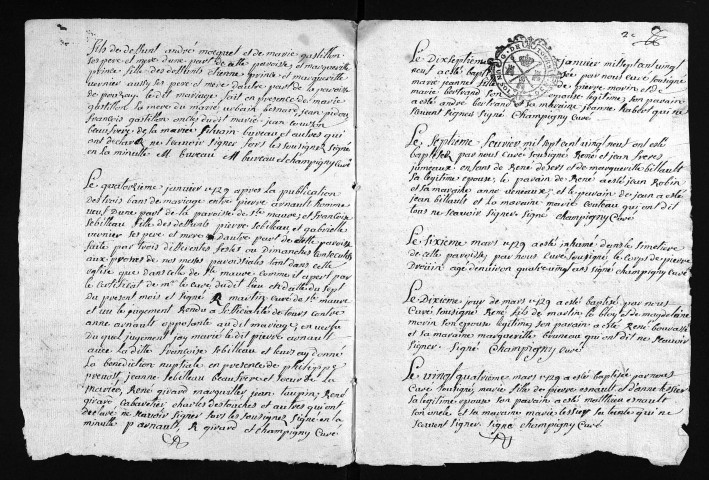 fils de deffunt andré mocquet et de marie gastillon
ses pere et mere d'une part de cette paroisse, et marguerite
prince fille des deffunts etienne prince et marguerite
vernier aussy ses pere et mere d'autre part de la paroisse
de pouzay le dit mariage fait en presence de marie
gastillon la mere du marié urbain besnard jean pidoux
françois gastillon oncles dudit marié jean
beaufrere de la mariée Silvain bureau et autres qui
ont declaré ne scavoir signer fors les soussignés signé
en la minutte M bureau M bureau et champigny Curé
Le quatorzième janvier 1729 apres la publication
des trois bans de mariage entre pierre arnault homme
veuf d'une part de la paroisse de Ste maure et françoise
sebilleau fille des deffunts pierre sebilleau et gabrielle
vernier ses pere et mere d'autre part de cette paroisse
faite par trois differentes festes ou dimanches consecutifs
aux prosnes de nos messes paroissiales tant dans cette
eglise que dans celle de Ste maure comme il apert par
le certificat de mr le curé dudit lieu en datte du sept
du present mois et signé martin curé de Ste maure
et vu le jugement Rendu a l'officialité de tours contre
anne arnault opposante au dit mariage, en vertu
du quel jugement jay marié le dit pierre arnault
avec la ditte françoise sebilleau et leur ay donné
la benediction nuptiale en presence de philippe
prevost, jeanne sebilleau beaufrere et soeur de la
mariée, René girard jean taupin, René
girard Cabaretier charles destouches et autres qui ont
declaré ne scavoir signer fors les soussignés signé en la
minutte P arnault, R girard et champigny Curé
2e
Le Dixseptieme janvier mil sept cent vingt
neuf a esté baptisée par nous curé soussigné
marie jeanne fille de pierre morin et de
marie bertrand son epouse legitime, son parain
a esté andré bertrand sa maraine jeanne habert qui ne
scavent signer signé Champigny Curé
Le Septieme fevrier mil sept cent vingt neuf ont esté
baptisés par nous Curé soussigné René et jean freres
jumeaux enfans de René desers et de marguerite billault
sa legitime epouse; le parain de René a esté jean Robin
et sa maraine anne veneaux; et le parain de jean a esté
jean billault et la maraine marie couteau qui ont dit
tous ne scavoir signer signé champigny Curé
Le sixieme mars 1729 a esté inhumé dans le simetiere
de cette paroisse par nous curé soussigné le corps de pierre
drouin agé denviron quatre vingt ans signé champigny Curé
Le Dixieme jour de mars 1729 a esté baptisé par nous
Curé soussigné René fils de martin le bloy et de magdelaine
morin son epouse legitime son parain a esté René bouvasse
et sa maraine marguerite qui ont dit ne scavoir
signer signé Champigny Curé
Le vingt quatrieme mars 1729 a esté baptisée par nous
Curé soussigné, marie fille de pierre esnault et d'anne
sa legitime epouse son parain a esté mathieu esnault
son oncle et sa maraine marie sa tante qui ne
scavent signer signé champigny Curé